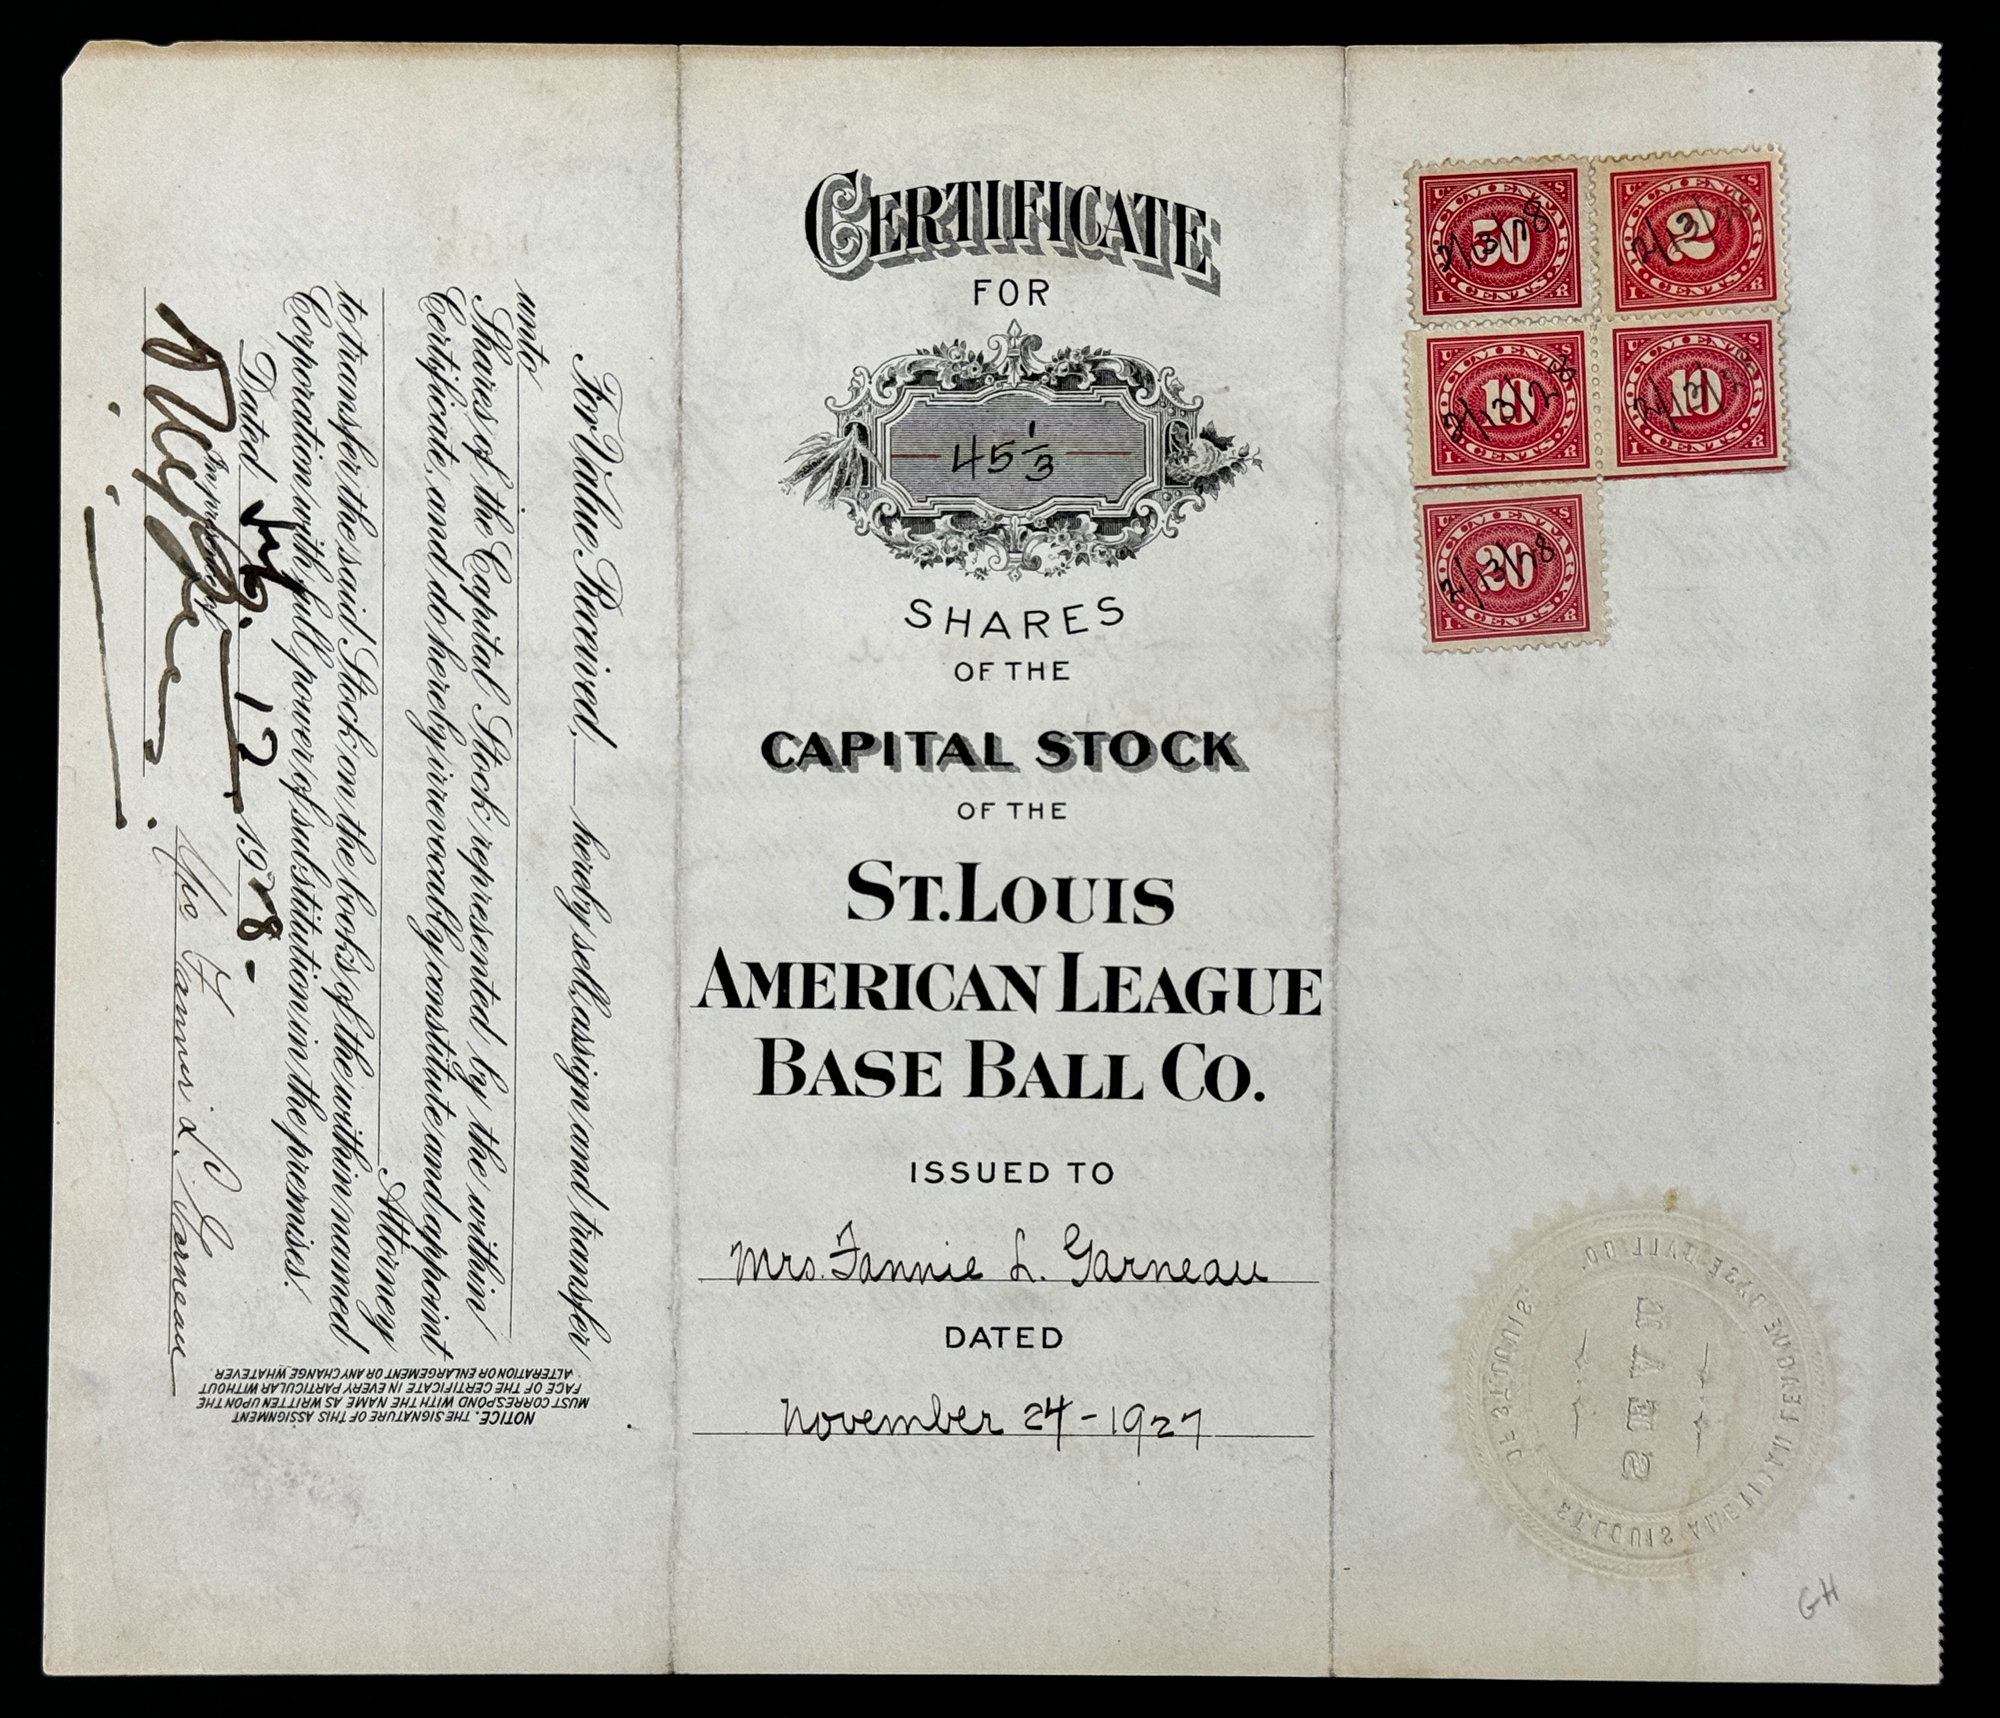 CERTIFICATE
FOR
45 1/3
SHARES
OF THE
CAPITAL STOCK
OF THE
ST. LOUIS
AMERICAN LEAGUE
BASE BALL CO.
ISSUED TO
Mrs. Fannie L. Garneau
DATED
November 24-1927
For Value Received, hereby sell, assign and transfer
unto
Shares of the Capital Stock represented by the within
Certificate, and do hereby irrevocably constitute and appoint
Attorney
to transfer the said Stock on the books of the within named
Corporation with full power of substitution in the premises.
Dated Feb. 12 1928
In presence of
Mrs Fannie L. Garneau
NOTICE. THE SIGNATURE OF THIS ASSIGNMENT
MUST CORRESPOND WITH THE NAME AS WRITTEN UPON THE
FACE OF THE CERTIFICATE IN EVERY PARTICULAR WITHOUT
ALTERATION OR ENLARGEMENT OR ANY CHANGE WHATEVER.
U.S. DOCUMENTARY
50
CENTS
I.R.
2/13/28
U.S. DOCUMENTARY
2
CENTS
I.R.
2/13/28
U.S. DOCUMENTARY
10
CENTS
I.R.
2/13/28
U.S. DOCUMENTARY
10
CENTS
I.R.
2/13/28
U.S. DOCUMENTARY
20
CENTS
I.R.
2/13/28
ST. LOUIS AMERICAN LEAGUE BASE BALL CO.
OF ST. LOUIS.
SEAL
GH